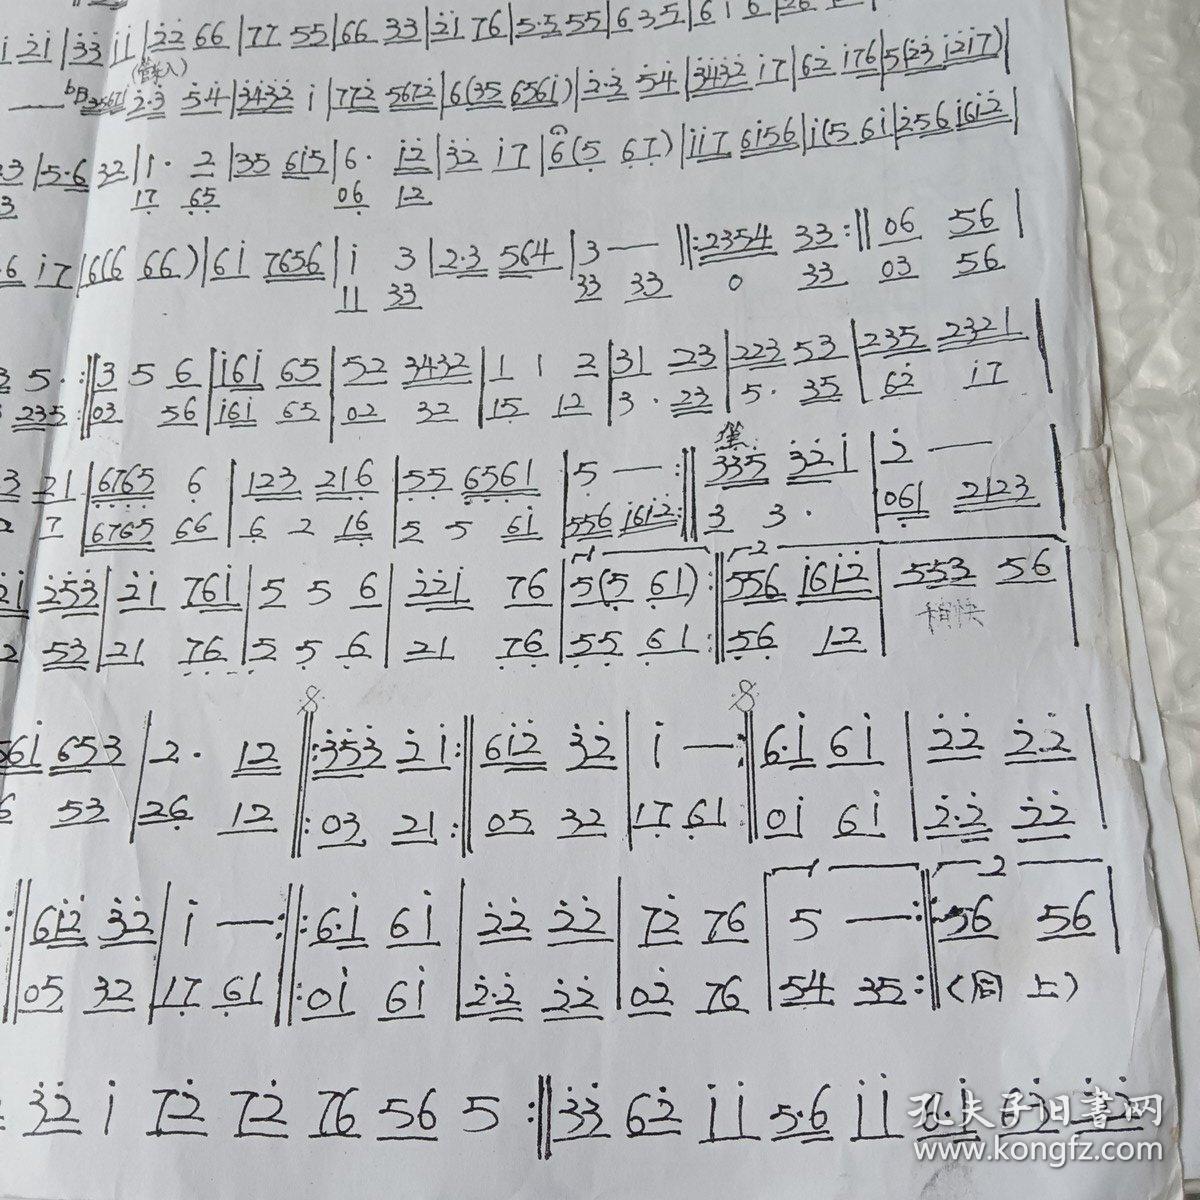 i̇ 2̇i̇ | 3̇3̇ i̇i̇ | 2̇2̇ 66 | 77 55 | 66 33 | 2̇i̇ 76 | 5·5 55 | 6 35 |
2̇·3̇ 5̇·4̇ | 3̇4̇3̇2̇ i̇ | 772̇ 5672̇ | 6(35 6561̇) | 2̇·3̇ 5̇·4̇ | 3̇4̇3̇2̇ i̇7 | 62̇ i̇76 | 5(2̇3̇ i̇2̇i̇7) |
| 5·6 32 | 1· 2 | 35 6i̇5 | 6· i̇2̇ | 3̇2̇ i̇7 | 6(5̣ 6̣7̣) | i̇i̇7 6i̇56 | i̇(5 6i̇ | 2̇56 i̇6i̇2̇ |
3 17̣ 6̣5̣ 06̣ 12
·6 i̇7 | 6(6 66) | 6i̇ 7656 | i̇ 3 | 2·3 564 | 3 — ‖: 2354 33 :‖ 06 56 |
11 33 33 33 0 33 03 56
5· :‖ 3 5 6 | i̇6i̇ 65 | 52 3432 | 1 1 2 | 31 23 | 223 53 | 235 2321 |
235 :‖ 03 56 | i̇6i̇ 65 | 02 32 | 15 12 | 3· 23 | 5· 35 | 62̇ i̇7 |
3 21 | 6̣7̣6̣5̣ 6̣ | 123 216̣ | 5̣5̣ 6̣5̣6̣1 | 5̣ — :‖ 3̇3̇5̇ 3̇2̇i̇ | 2̇ — |
7̣ | 6̣7̣6̣5̣ 66 | 6̣ 2 16̣ | 5 5 6i̇ | 556 i̇6i̇2̇ :‖ 3 3· | 06̣1 2123 |
2̇i̇ 2̇5̇3̇ | 2̇i̇ 76i̇ | 5 5 6 | 2̇2̇i̇ 76 | 1 5(5̣ 6̣1) :‖ 2 556 i̇6i̇2̇ | 553 56
稍快
2 53 | 21 7̣6̣ | 5̣ 5̣ 6̣ | 21 7̣6̣ | 5̣5̣ 6̣1 :‖ 5̣6̣ 12 |
56i̇ 653 | 2· 12 ‖: 3̇5̇3̇ 2̇i̇ :‖ 6i̇2̇ 3̇2̇ | i̇ — :‖ 6·i̇ 6i̇ | 2̇2̇ 2̇·2̇ |
6 53 | 26̣ 12 ‖: 03 21 :‖ 05 32 | 17̣ 6̣1 :‖ 0i̇ 6i̇ | 2̇·2̇ 2̇2̇ |
:‖ 6i̇2̇ 3̇2̇ | i̇ — :‖: 6·i̇ 6i̇ | 2̇2̇ 2̇2̇ | 72̇ 76 | 1 5 — :‖ 2 56 56 |
05 32 | 17̣ 6̣1 ‖: 0i̇ 6i̇ | 2̇·2̇ 2̇2̇ | 02̇ 76 | 54 35 :‖ (同上)
3̇2̇ i̇ 72̇ 72̇ 76 56 5 :‖ 3̇3̇ 62̇ i̇i̇ 5·6 i̇i̇ 6·i̇
孔夫子旧書网
www.kongfz.com